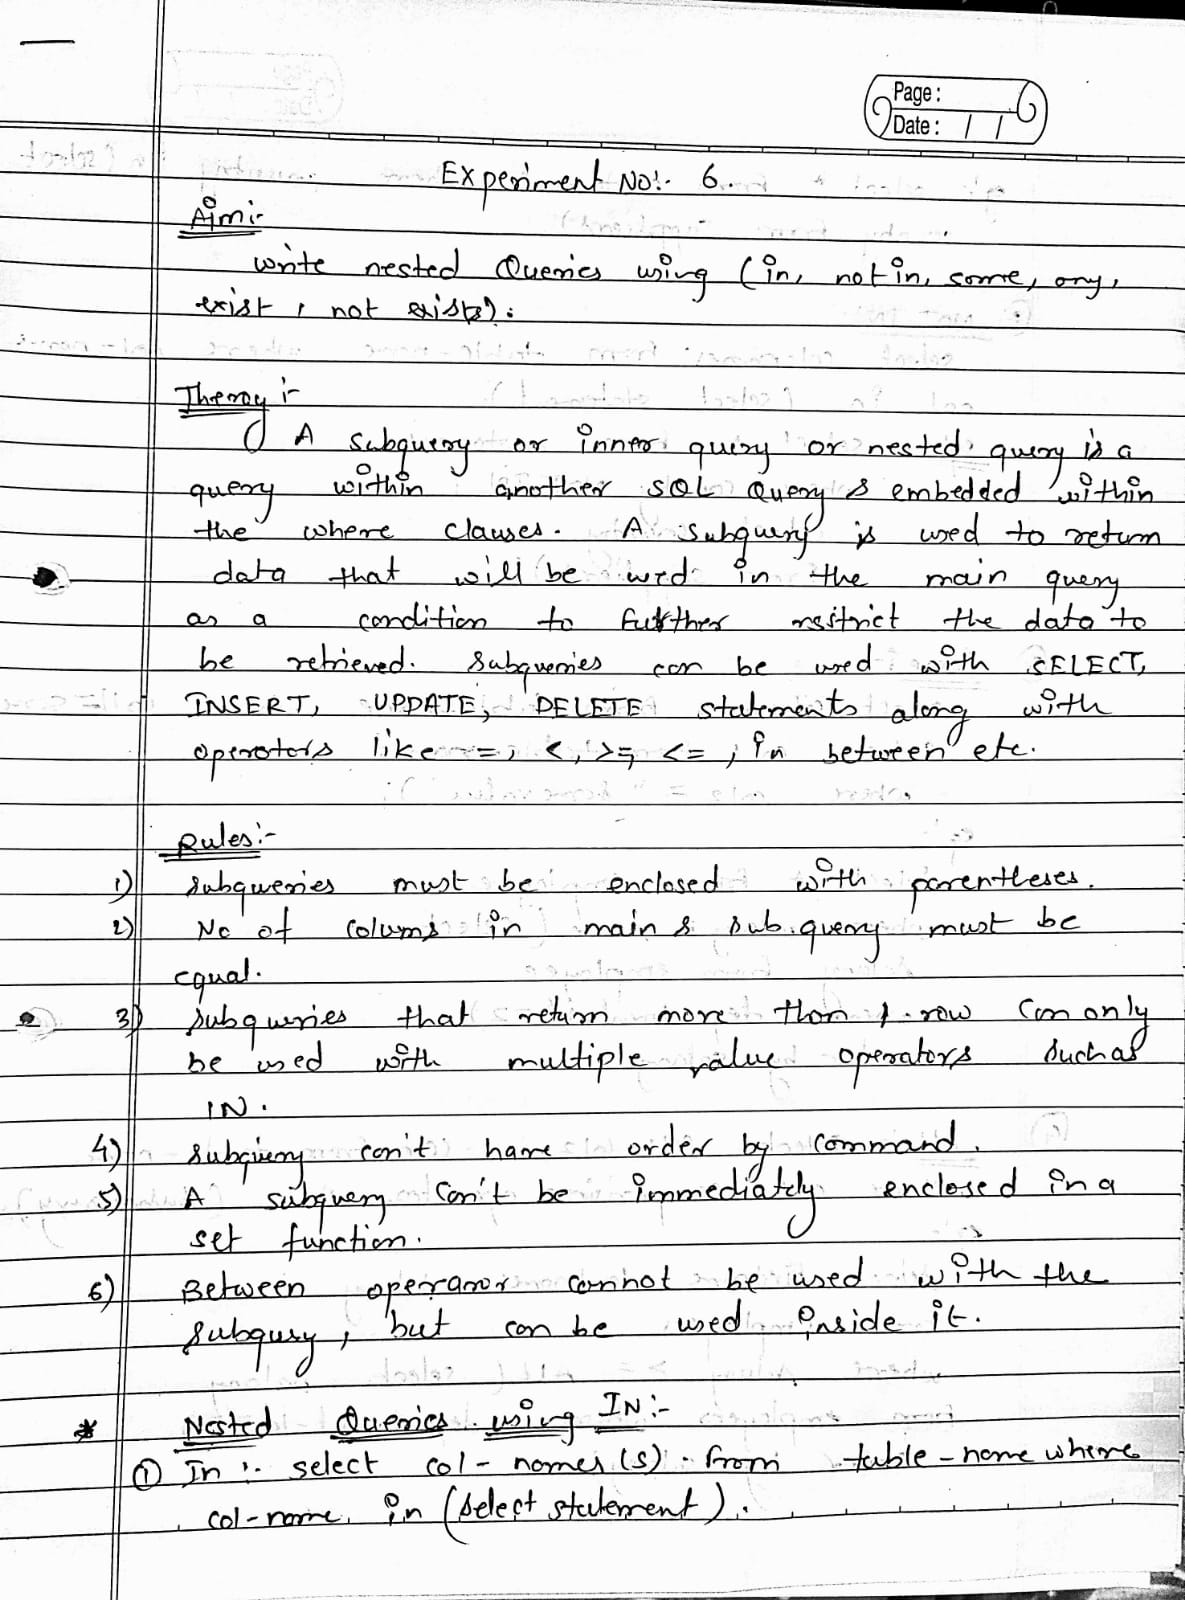 Page :
Date : / /
Experiment No:- 6.
Aim:-
write nested Queries using (in, not in, some, any,
exist, not exists).
Theroy :-
A subquery or inner query or nested query is a
query within another SQL Query & embedded within
the where clauses. A subquery is used to return
data that will be used in the main query
as a condition to further restrict the data to
be retrieved. Subqueries can be used with SELECT,
INSERT, UPDATE, DELETE statements along with
operators like =, <, >=, <=, in between etc.
Rules:-
1) subqueries must be enclosed with parentheses.
2) No of colums in main & sub.query must be
equal.
3) subqueries that return more than 1 row can only
be used with multiple value operators such as
IN.
4) subquery can't have order by command.
5) A subquery can't be immediately enclosed in a
set function.
6) Between operator cannot be used with the
subqury, but can be used inside it.
* Nested Queries using IN:-
① In :- select col-names(s) from table-name where
col-name in (select statement).